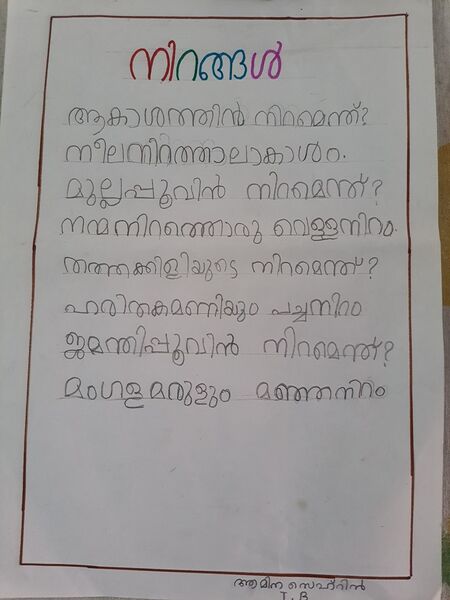 നിറങ്ങൾ
ആകാശത്തിൻ നിറമെന്ത്?
നീലനിറത്താലാകാശം.
മുല്ലപ്പൂവിൻ നിറമെന്ത്?
നന്മനിറത്തൊരു വെള്ളനിറം.
തത്തക്കിളിയുടെ നിറമെന്ത്?
ഹരിതകമണിയും പച്ചനിറം
ജമന്തിപ്പൂവിൻ നിറമെന്ത്?
മംഗളമരുളും മഞ്ഞനിറം
ആമിന സെഹ്റിൻ
I. B